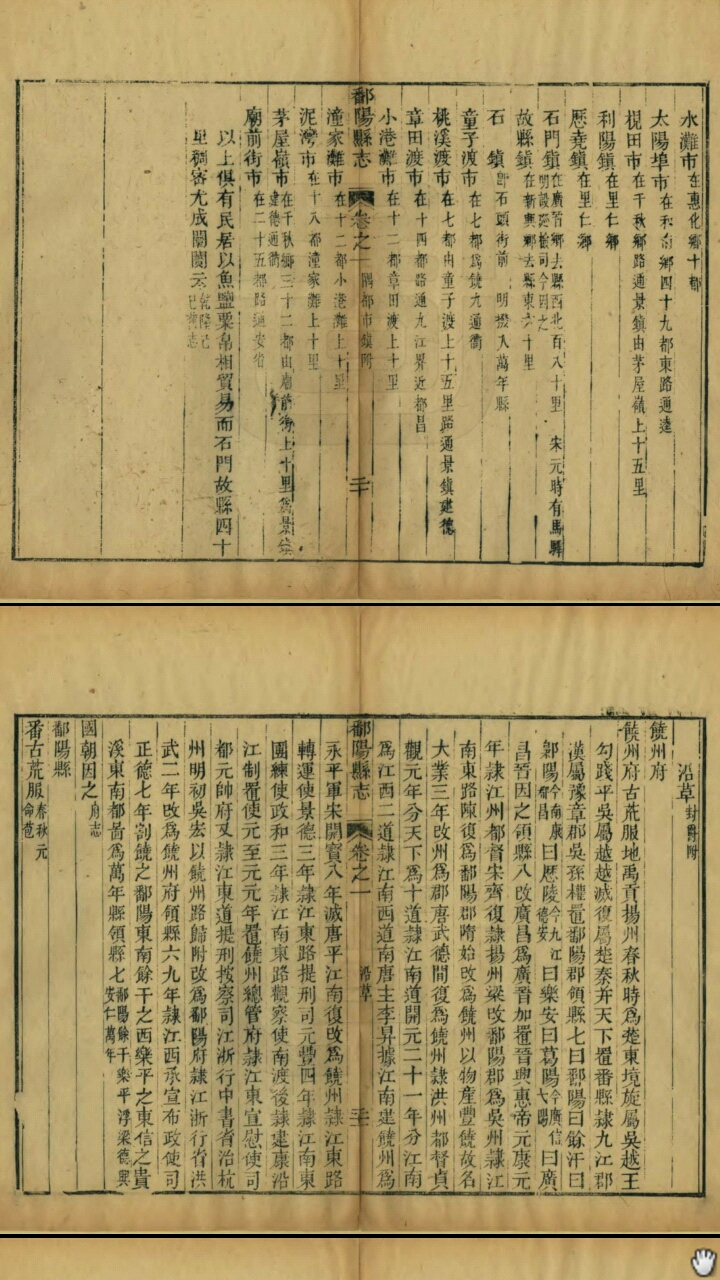 水灘市在惠化鄉十都
太陽埠市在和 鄉四十九都東路通達
枧田市在千秋鄉路通景鎮由茅屋嶺上十五里
利陽鎮在里仁鄉
歷堯鎮在里仁鄉
石門鎮在廣晋鄉去縣西北百八十里 宋元時有馬驛
明設廵檢司今因之
故縣鎮在新興鄉去縣東六十里
石鎮即石頭街前 明撥入萬年縣
童子渡市在七都爲饒九通衢
桃溪渡市在七都由童子渡上十五里路通景鎮建德
章田渡市在十四都路通九江界近都昌
小港灘市在十二都章田渡上十里
鄱陽縣志 卷之一 隅都市鎮附 三十
潼家灘市在十二都小港灘上十里
泥灣市在十八都潼家灘上十里
茅屋嶺市在千秋鄉三十二都由廟前街上十里爲景鎮
建德通衢
廟前街市在二十五都路通安省
以上俱有民居以魚鹽粟帛相貿易而石門故縣四十
里稠密尤成闤闠云乾隆己
巳舊志
沿革封爵附
饒州府
饒州府古荒服地禹貢揚州春秋時爲楚東境旋屬吳越王
勾踐平吳屬越越滅復屬楚秦并天下置番縣隸九江郡
漢屬豫章郡吳孫權置鄱陽郡領縣七曰鄱陽曰餘汗曰
鄡陽今南康都昌曰歷陵今九江德安曰樂安曰葛陽今廣信弋陽曰廣
昌晉因之領縣八改廣昌爲廣晉加置晉興惠帝元康元
年隸江州都督宋齊復隸揚州梁改鄱陽郡爲吳州隸江
南東路陳復爲鄱陽郡隋始改爲饒州以物産豐饒故名
大業三年改州爲郡唐武德間復爲饒州隸洪州都督貞
觀元年分天下爲十道隸江南道開元二十一年分江南
爲江西二道隸江南西道南唐主李昇據江南建饒州爲
鄱陽縣志 卷之一 沿革 三十
永平軍宋開寶八年滅唐平江南復改爲饒州隸江東路
轉運使景德三年隸江東路提刑司元豐四年隸江南東
團練使政和三年隸江南東路觀察使南渡後隸建康沿
江制置使元至元元年置饒州總管府隸江東宣慰使司
都元帥府又隸江東道提刑按察司江浙行中書省治杭
州明初吳宏以饒州路歸附改爲鄱陽府隸江浙行省洪
武二年改爲饒州府領縣六九年隸江西承宣布政使司
正德七年割饒之鄱陽東南餘干之西樂平之東信之貴
溪東南都啚爲萬年縣領縣七鄱陽餘干樂平浮梁德興
安仁萬年
國朝因之府志
鄱陽縣
番古荒服春秋元
命苞